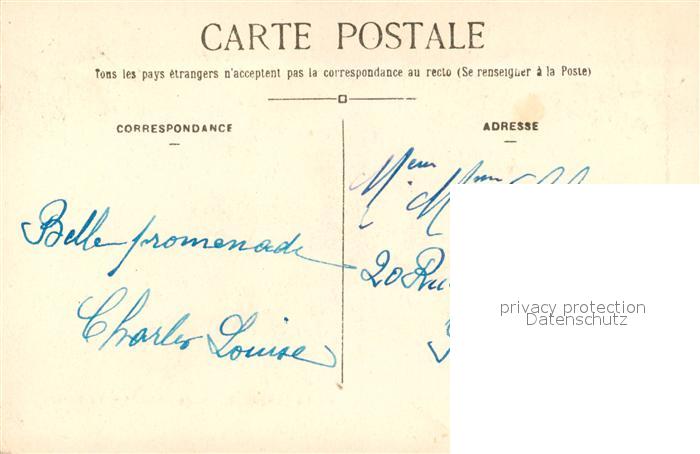 CARTE POSTALE
Tous les pays étrangers n'acceptent pas la correspondance au recto (Se renseigner à la Poste)
CORRESPONDANCE
ADRESSE
Belle promenade
Charles Louise
Mieur
Mme
20 Rue
privacy protection
Datenschutz